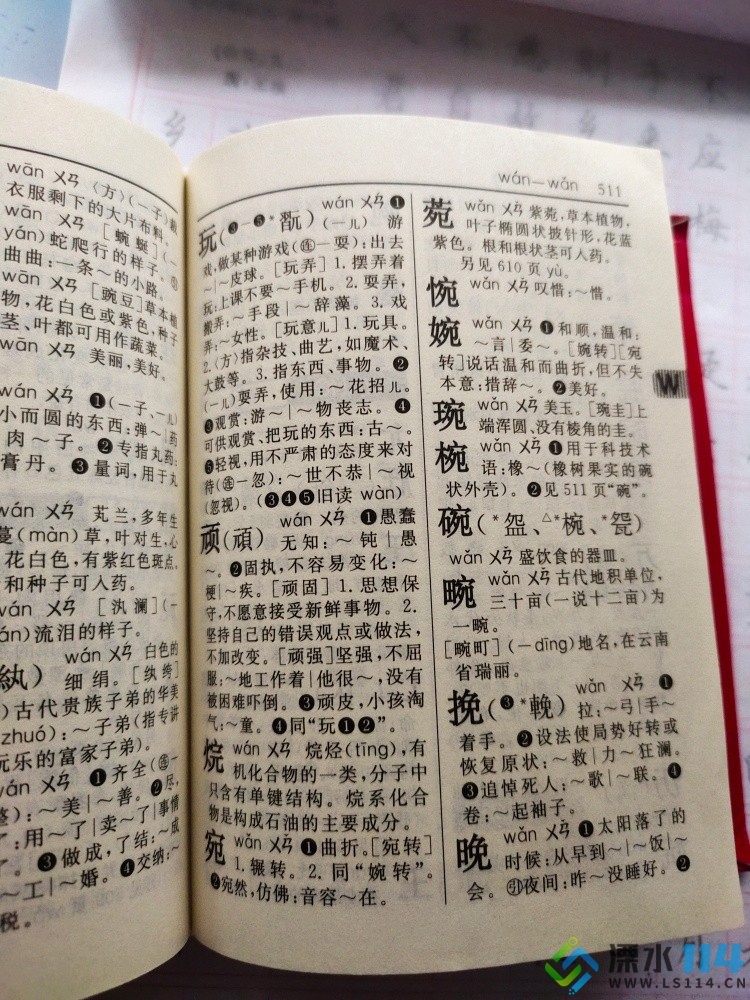 wān ㄨㄢ (方)(一子)裁
衣服剩下的大片布料。
wān ㄨㄢ [蜿蜒](一
yán)蛇爬行的样子。㊀
曲曲:一条~的小路。
wān ㄨㄢ [豌豆]草本植
物,花白色或紫色,种子
茎、叶都可用作蔬菜。
wān ㄨㄢ 美丽,美好。
wán ㄨㄢˊ ❶(一子、一儿)
小而圆的东西:弹~|药
肉~子。❷专指丸药:
膏丹。❸量词,用于丸
wán ㄨㄢˊ 芄兰,多年生
蔓(màn)草,叶对生,心
花白色,有紫红色斑点。
和种子可入药。
wán ㄨㄢˊ [汍澜](一
án)流泪的样子。
紈) wán ㄨㄢˊ 白色的
细绢。[纨绔]
古代贵族子弟的华美
zhuó):~子弟(指专讲
玩乐的富家子弟)。
wán ㄨㄢˊ ❶齐全(连一
整):~美|~善。❷尽,
了:用~了|卖~了|事情
了。❸做成,了结:~成
~工|~婚。❹交纳:~
税。
wán—wǎn 511
玩(❸—❺*翫) wán ㄨㄢˊ ❶
(一儿) 游
戏,做某种游戏(连一耍):出去
~|~皮球。[玩弄]1.摆弄着
玩:上课不要~手机。2.耍弄,
搬弄:~手段|~辞藻。3.戏
弄:~女性。[玩意儿]1.玩具。
2.(方)指杂技、曲艺,如魔术、
大鼓等。3.指东西、事物。❷
(一儿)耍弄,使用:~花招儿。
❸观赏:游~|~物丧志。❹
可供观赏、把玩的东西:古~。
❺轻视,用不严肃的态度来对
待(连一忽):~世不恭|~视
(忽视)。(❸❹❺旧读 wàn)
顽(頑) wán ㄨㄢˊ ❶愚蠢
无知:~钝|愚
~。❷固执,不容易变化:~
梗|~疾。[顽固]1.思想保
守,不愿意接受新鲜事物。2.
坚持自己的错误观点或做法,
不加改变。[顽强]坚强,不屈
服:~地工作着|他很~,没有
被困难吓倒。❸顽皮,小孩淘
气:~童。❹同“玩❶❷”。
烷 wán ㄨㄢˊ 烷烃(tīng),有
机化合物的一类,分子中
只含有单键结构。烷系化合
物是构成石油的主要成分。
宛 wǎn ㄨㄢˇ ❶曲折。[宛转]
1.辗转。2.同“婉转”。
❷宛然,仿佛:音容~在。
菀 wǎn ㄨㄢˇ 紫菀,草本植物,
叶子椭圆状披针形,花蓝
紫色。根和根状茎可入药。
另见610页yù。
惋 wǎn ㄨㄢˇ 叹惜:~惜。
婉 wǎn ㄨㄢˇ ❶和顺,温和:
~言|委~。[婉转][宛
转]说话温和而曲折,但不失
本意:措辞~。❷美好。
琬 wǎn ㄨㄢˇ 美玉。[琬圭]上
端浑圆、没有棱角的圭。
椀 wǎn ㄨㄢˇ ❶用于科技术
语:橡~(橡树果实的碗
状外壳)。❷见511页“碗”。
碗(*盌、△*椀、*瓷)
wǎn ㄨㄢˇ 盛饮食的器皿。
畹 wǎn ㄨㄢˇ 古代地积单位,
三十亩(一说十二亩)为
一畹。
[畹町](一dīng)地名,在云南
省瑞丽。
挽(❸*輓) wǎn ㄨㄢˇ ❶
拉:~弓|手~
着手。❷设法使局势好转或
恢复原状:~救|力~狂澜。
❸追悼死人:~歌|~联。❹
卷:~起袖子。
晚 wǎn ㄨㄢˇ ❶太阳落了的
时候:从早到~|~饭|~
会。㊀夜间:昨~没睡好。❷
W
溧水114
WWW.LS114.CN